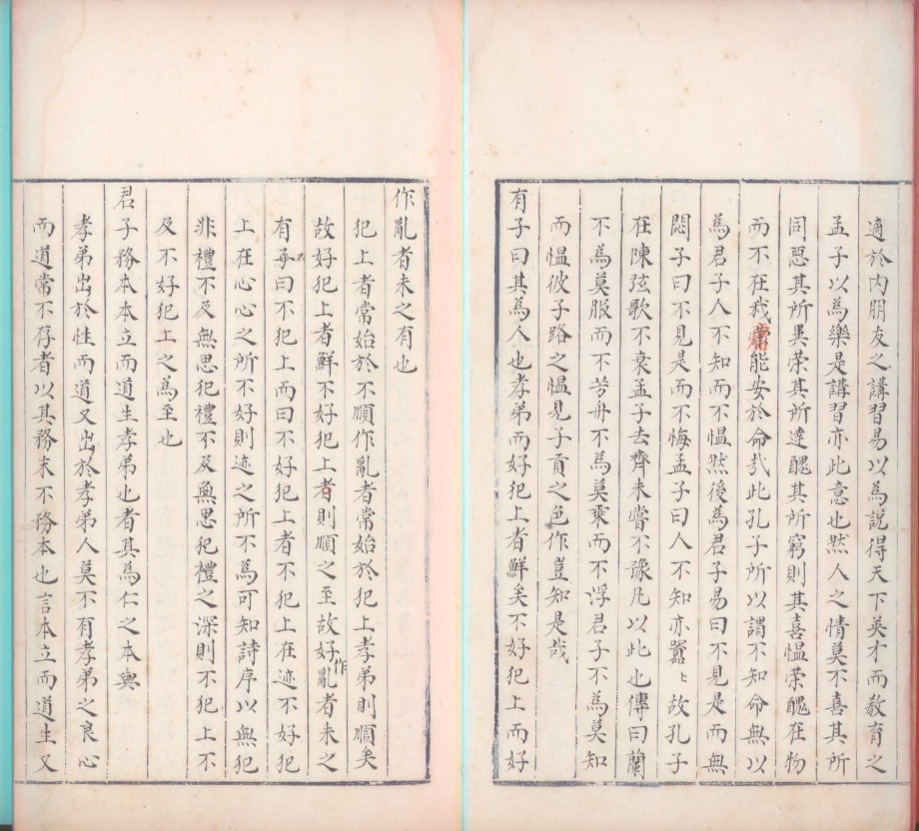 適於內朋友之講習易以為說得天下英才而敎育之
孟子以為樂是講習亦此意也然人之情莫不喜其所
同惡其所異荣其所達醜其所窮則其喜慍荣醜在物
而不在我當能安於命㦲此孔子所以謂不知命無以
為君子人不知而不慍然後為君子易曰不見是而無
悶子曰不見是而不悔孟子曰人不知亦囂〻故孔子
在陳弦歌不衰孟子去齊未嘗不豫凡以此也傳曰蘭
不為莫服而不芳舟不為莫乗而不浮君子不為莫知
而慍彼子路之慍見子貢之色作豈知是哉
有子曰其為人也孝弟而好犯上者鮮矣不好犯上而好
作亂者未之有也
犯上者常始於不順作亂者常始於犯上孝弟則順矣
故好犯上者鮮不好犯上者則順之至故好作亂者未之
有也不曰不犯上而曰不好犯上者不犯上在迹不好犯
上在心心之所不好則迹之所不為可知詩序以無犯
非禮不及無思犯禮不及無思犯禮之深則不犯上不
及不好犯上之為至也
君子務本本立而道生孝弟也者其為仁之本與
孝弟出於性而道又出於孝弟人莫不有孝弟之良心
而道常不存者以其務末不務本也言本立而道生又